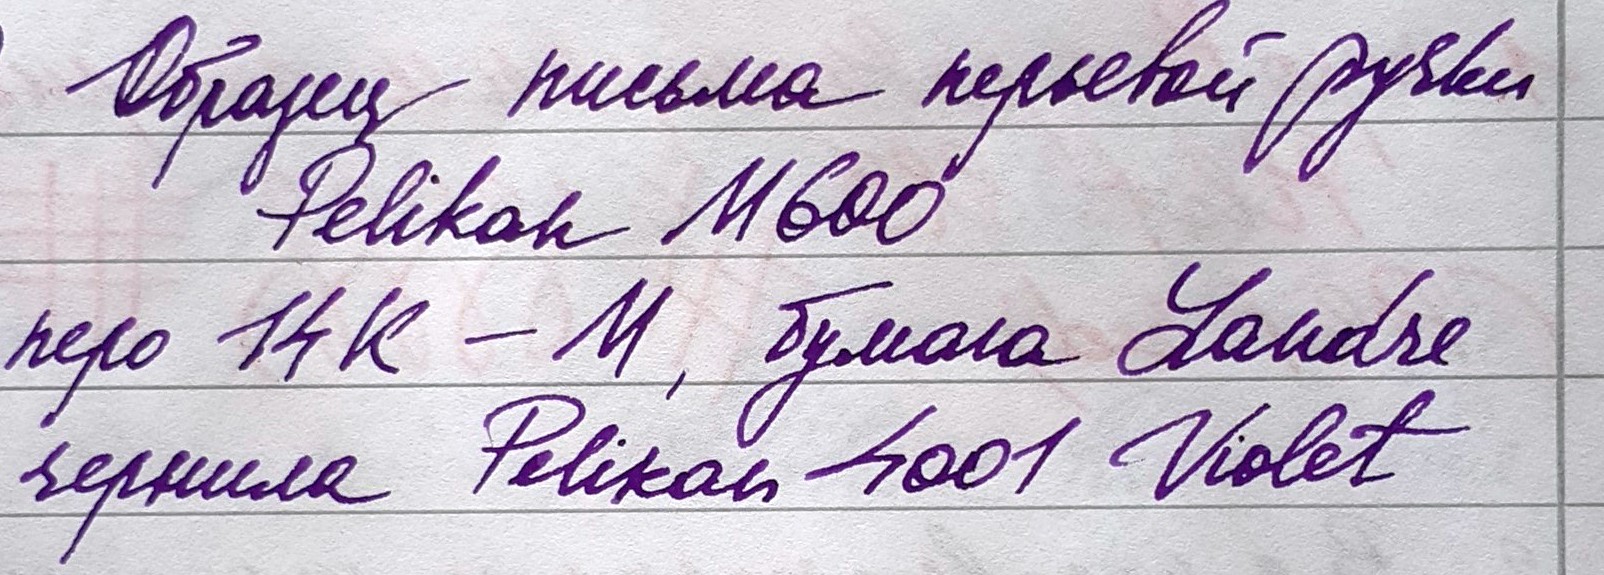 Образец письма перьевой ручки
Pelikan M600
перо 14К – М, бумага Landre
чернила Pelikan 4001 Violet